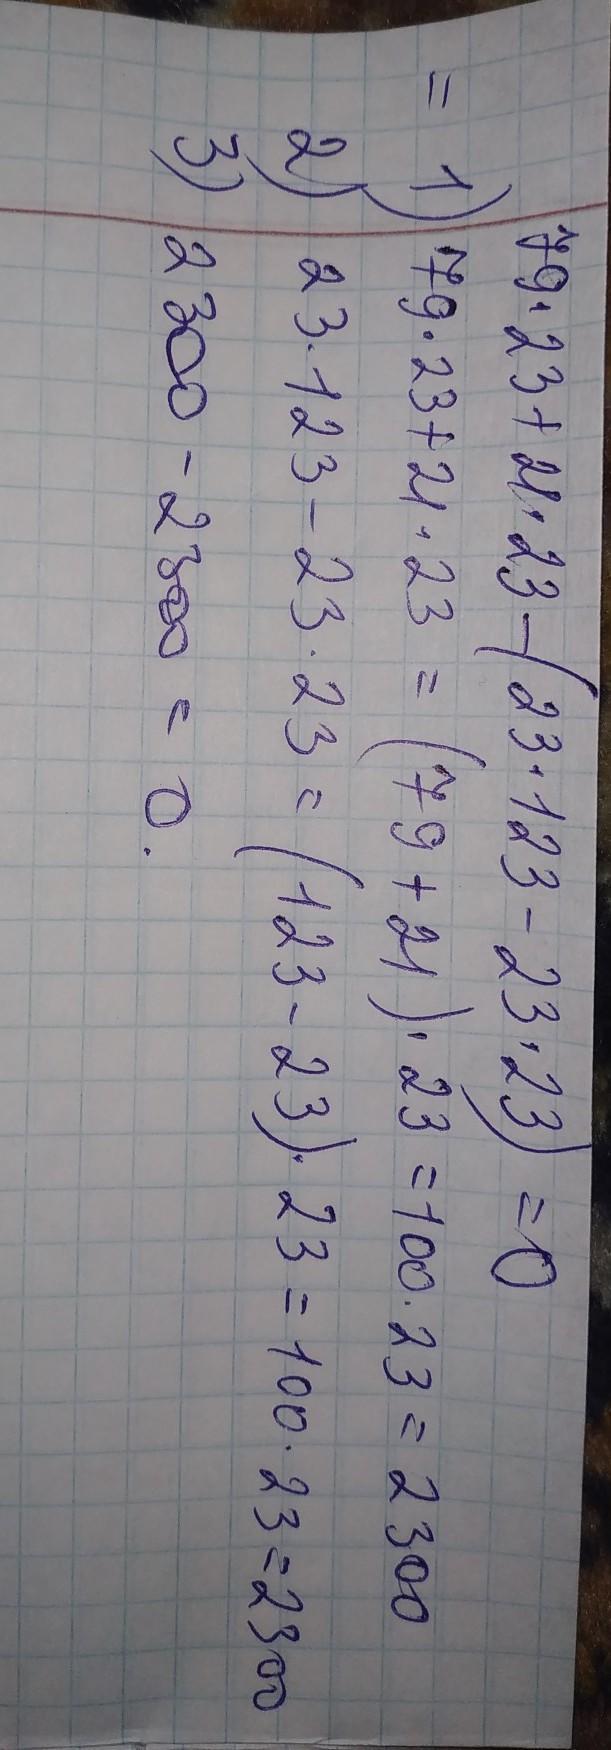 79·23+21·23-(23·123-23·23)=0
= 1) 79·23+21·23=(79+21)·23=100·23=2300
2) 23·123-23·23=(123-23)·23=100·23=2300
3) 2300-2300=0.